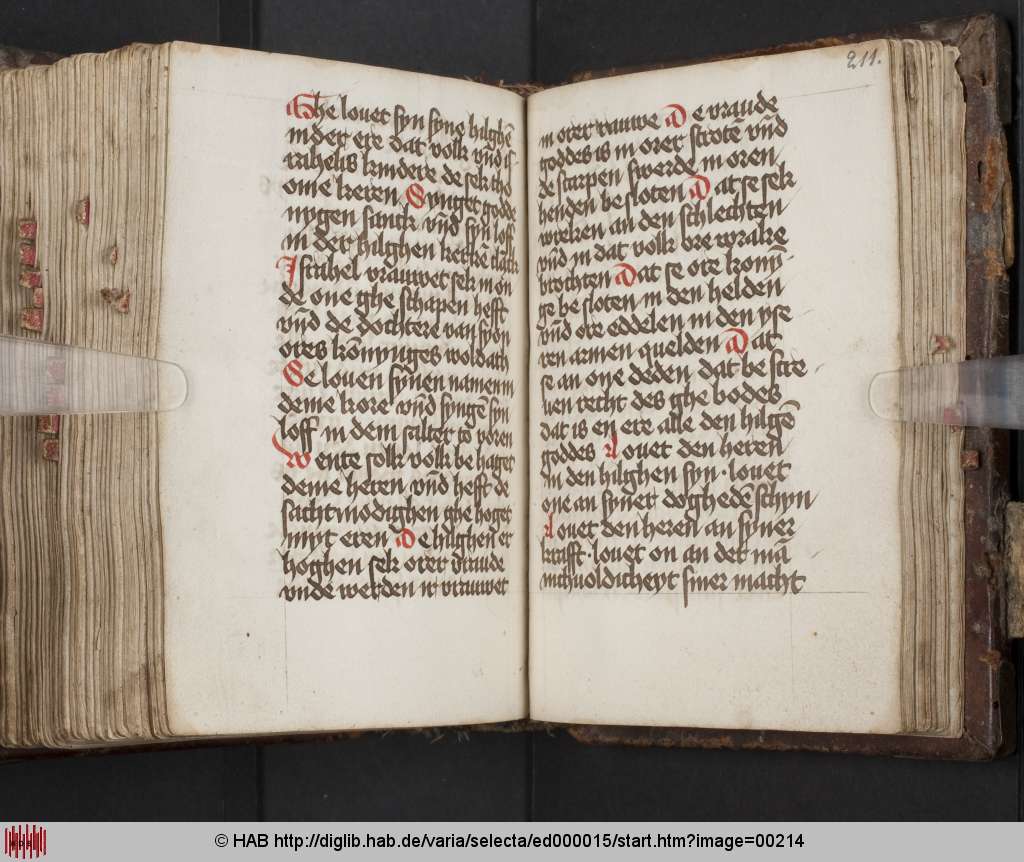 Ghe louet syn syne hilghē
in der ere dat volk vn̄d is
rahelis kindere de sek tho
ome keren Synget godde
nygen sanck vn̄d syn loff
in der hilghen kerkē
Israhel vrauwet sek in on
de one ghe schapen hefft
vn̄d de dochtere van syon
ores kōnynges woldath
Se louen synen namen in
deme kore vn̄d syngē syn
loff in dem salter to voren
Wente solk volk be haget
deme heren vn̄d hefft de
sachtmodighen ghe hoget
myt eren De hilghen er
hoghen sek orer vraude
vnde werden ir vrauwet
211.
in orer rauwe De vraude
goddes is in orer strotē vn̄d
de scarpen swerde in oren
henden be sloten Dat se sek
wreken an den schlechten
vn̄d in dat volk bre wrake
brochten Dat se ore konȳ
ge be sloten in den helden
vn̄d ore eddelen in den yse
ren armen quelden Dat
se an one deden dat be scre
uen recht des ghe bodes
dat is en ere alle den hilgē
goddes Louet den heren
in den hilghen syn · louet
one an syner doghedē schyn
Louet den heren an syner
krafft · louet on an der mā
nichuoldicheyt siner macht
© HAB http://diglib.hab.de/varia/selecta/ed000015/start.htm?image=00214